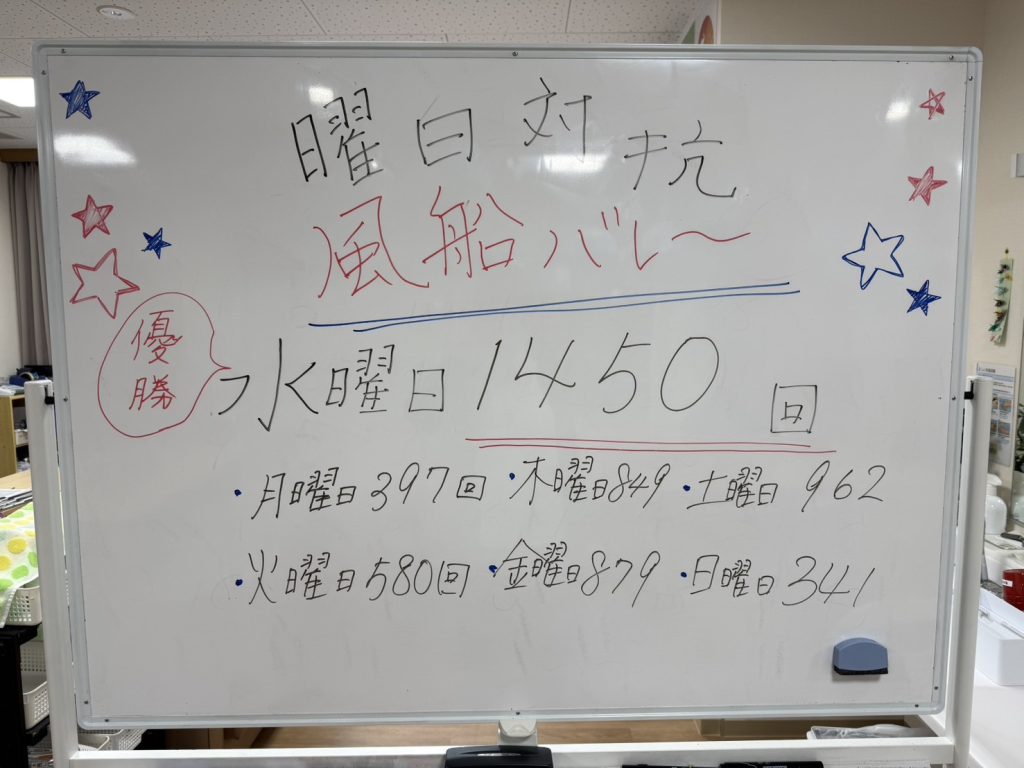 曜日対抗
風船バレー
優勝
水曜日 1450 回
・月曜日 397回 ・木曜日 849 ・土曜日 962
・火曜日 580回 ・金曜日 879 ・日曜日 341